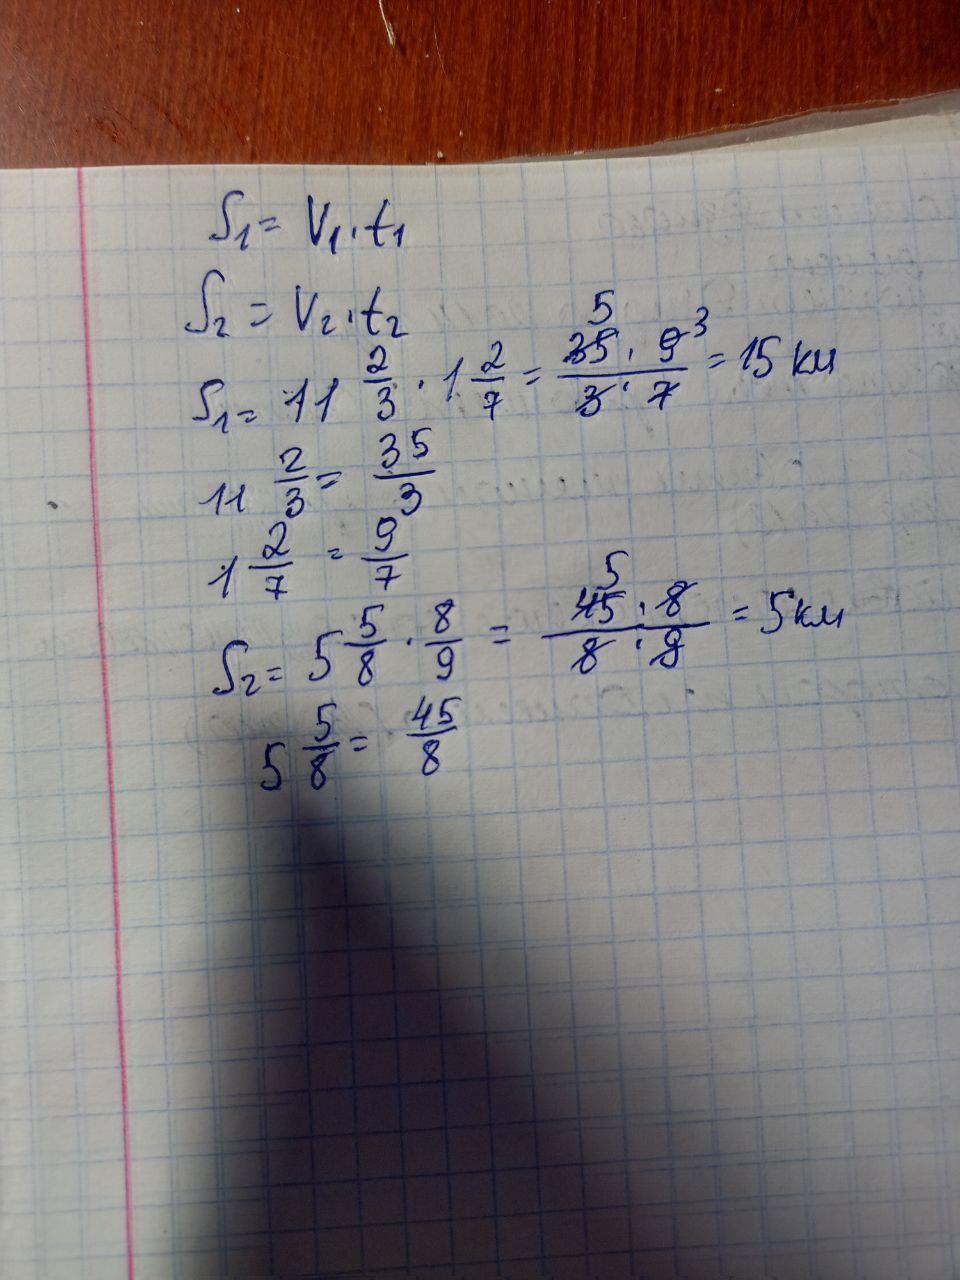 S₁ = V₁ · t₁
S₂ = V₂ · t₂
S₁ = 11 2/3 · 1 2/7 = 35 · 9 / 3 · 7 = 15 км
5 3
11 2/3 = 35/3
1 2/7 = 9/7
S₂ = 5 5/8 · 8/9 = 45 · 8 / 8 · 9 = 5 км
5
5 5/8 = 45/8